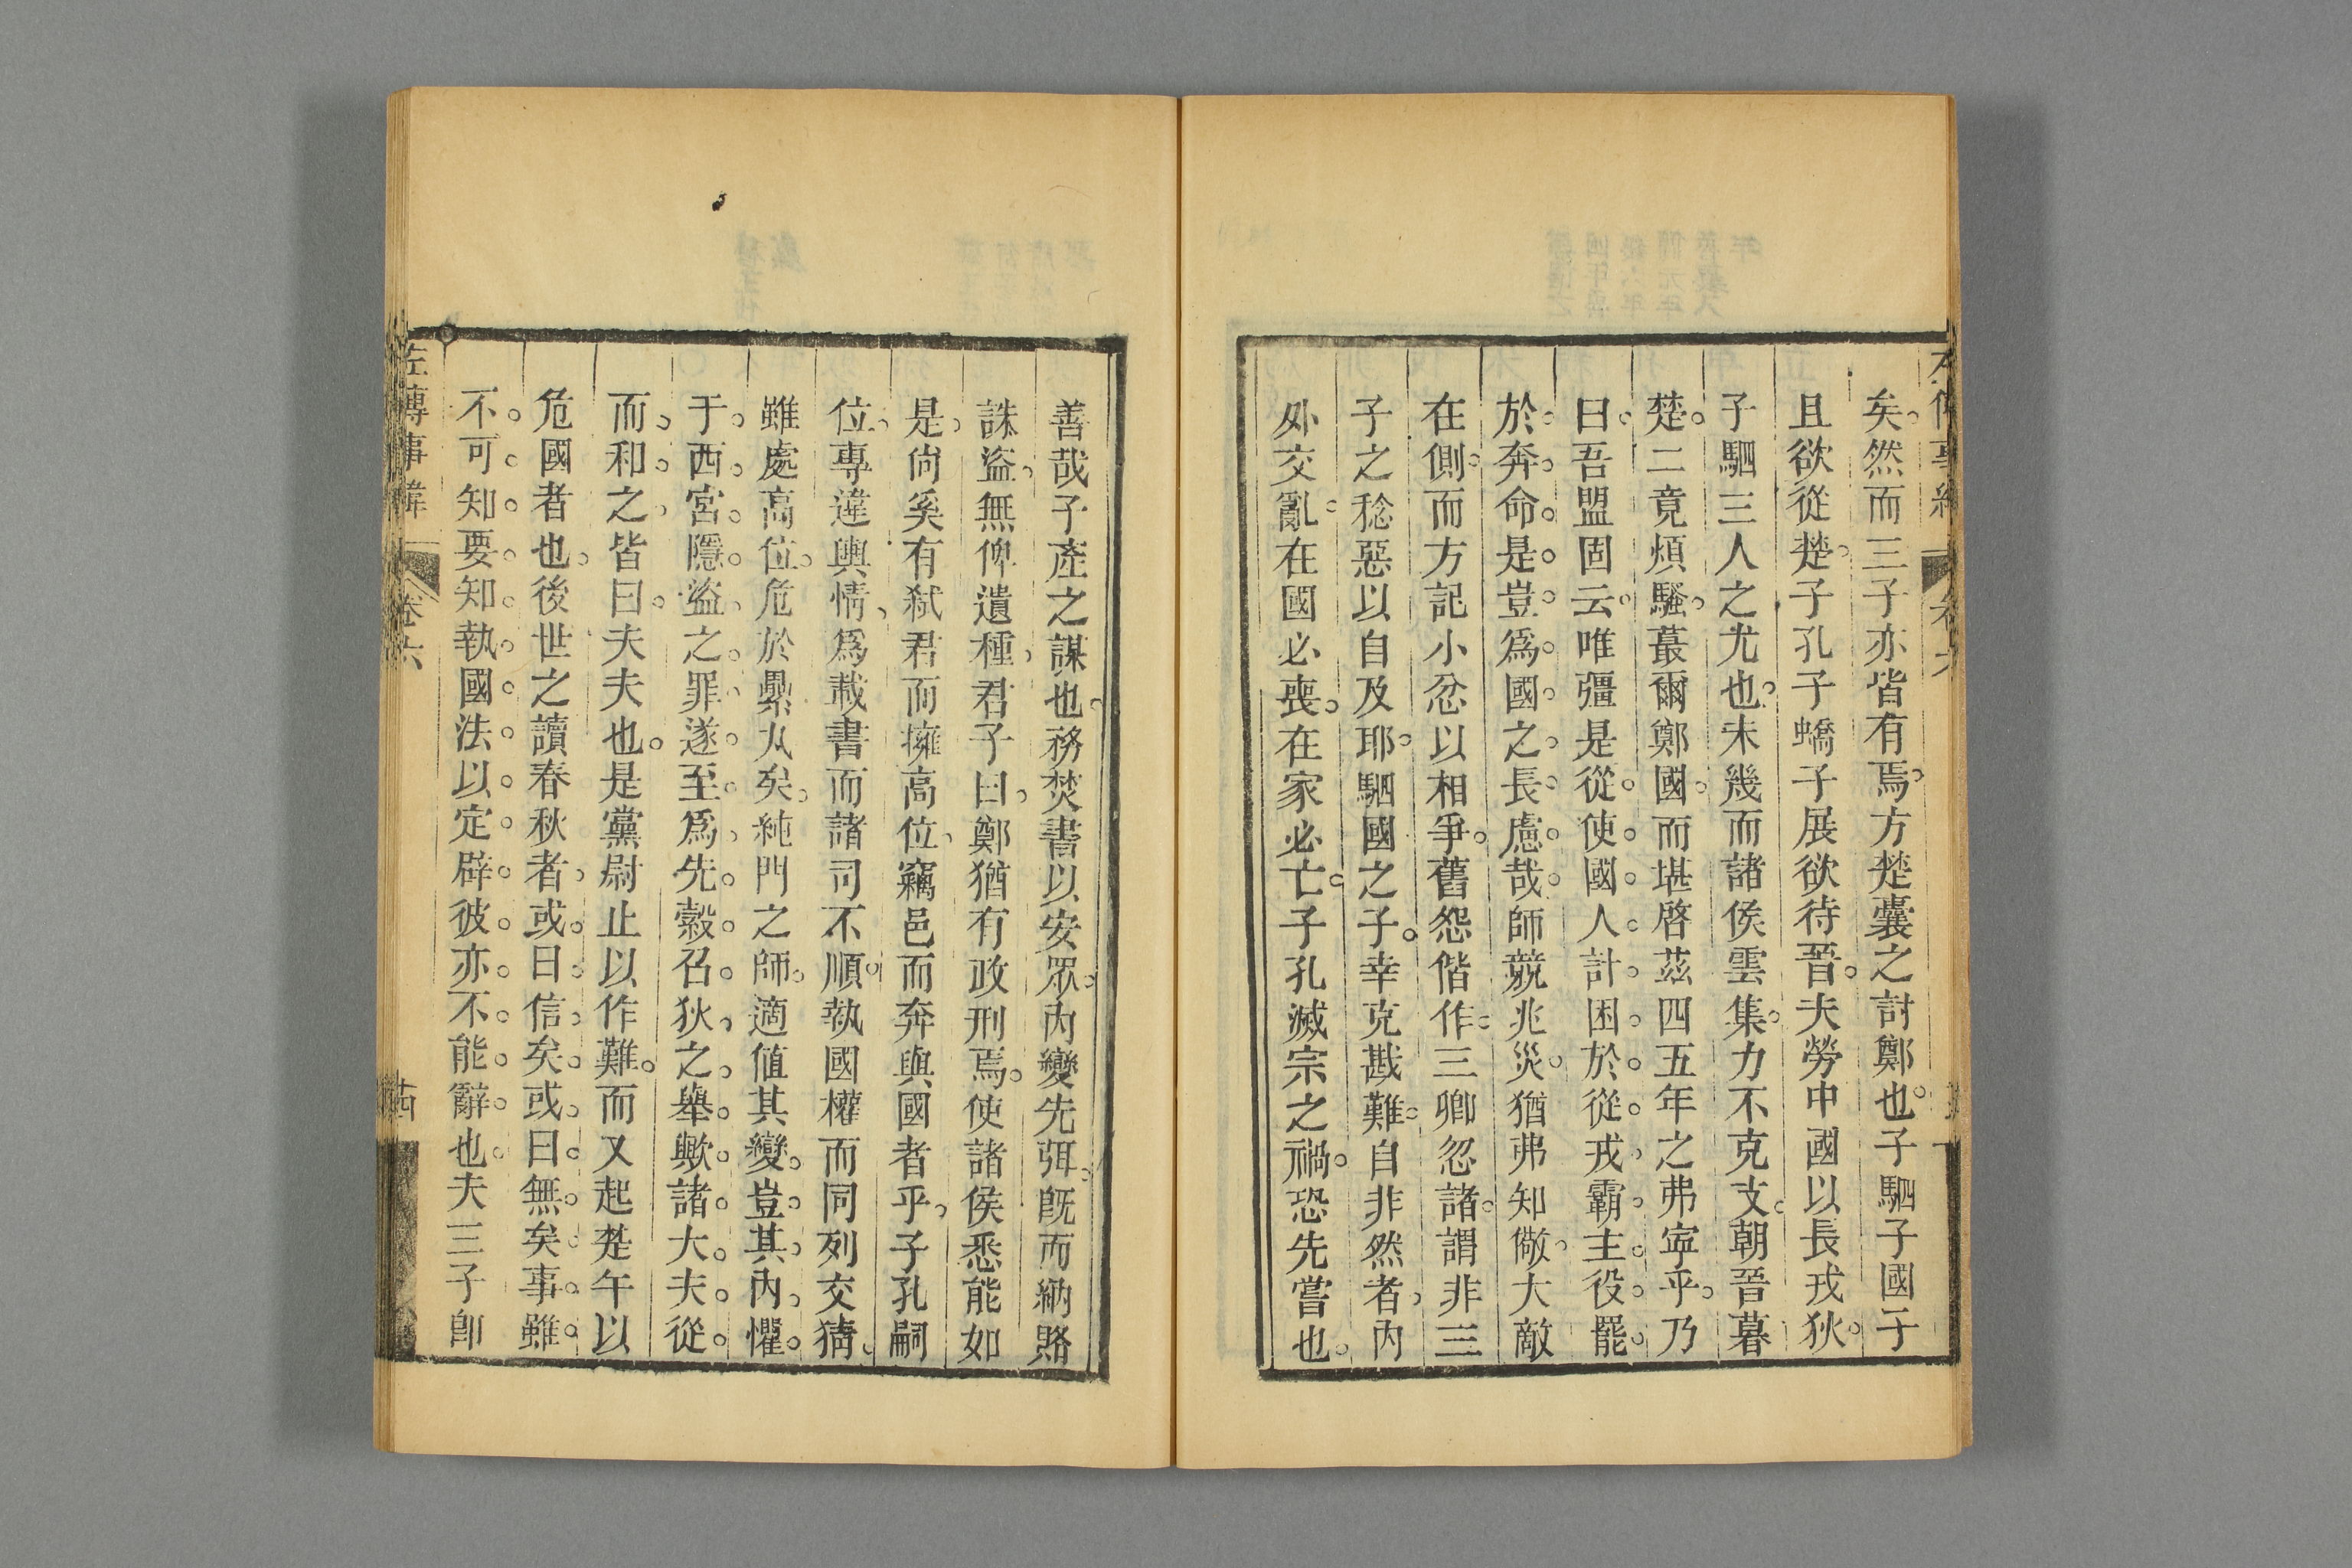 矣然而三子亦皆有焉方楚囊之討鄭也子駟子國子
且欲從楚子孔子蟜子展欲待晉夫勞中國以長戎狄
子駟三人之尤也未幾而諸侯雲集力不克支朝晉暮
楚二竟煩騷蕞爾鄭國而堪啓茲四五年之弗寧乎乃
曰吾盟固云唯彊是從使國人計困於從戎霸主役罷
於奔命是豈爲國之長慮哉師競兆災猶弗知儆大敵
在側而方記小忿以相爭舊怨偕作三卿忽諸謂非三
子之稔惡以自及耶駟國之子幸克戡難自非然者内
外交亂在國必喪在家必亡子孔滅宗之禍恐先嘗也
善哉子產之謀也務焚書以安眾内變先弭旣而納賂
誅盜無俾遺種君子曰鄭猶有政刑焉使諸侯悉能如
是尙奚有弑君而擁高位竊邑而奔與國者乎子孔嗣
位專違輿情爲載書而諸司不順執國權而同列交猜
雖處高位危於鼎魚矣純門之師適値其變豈其内懼
于西宮隱盜之罪遂至爲先縠召狄之舉歟諸大夫從
而和之皆曰夫夫也是黨尉止以作難而又起楚午以
危國者也後世之讀春秋者或曰信矣或曰無矣事雖
不可知要知執國法以定辟彼亦不能辭也夫三子卽
左傳事緯
卷六
十四